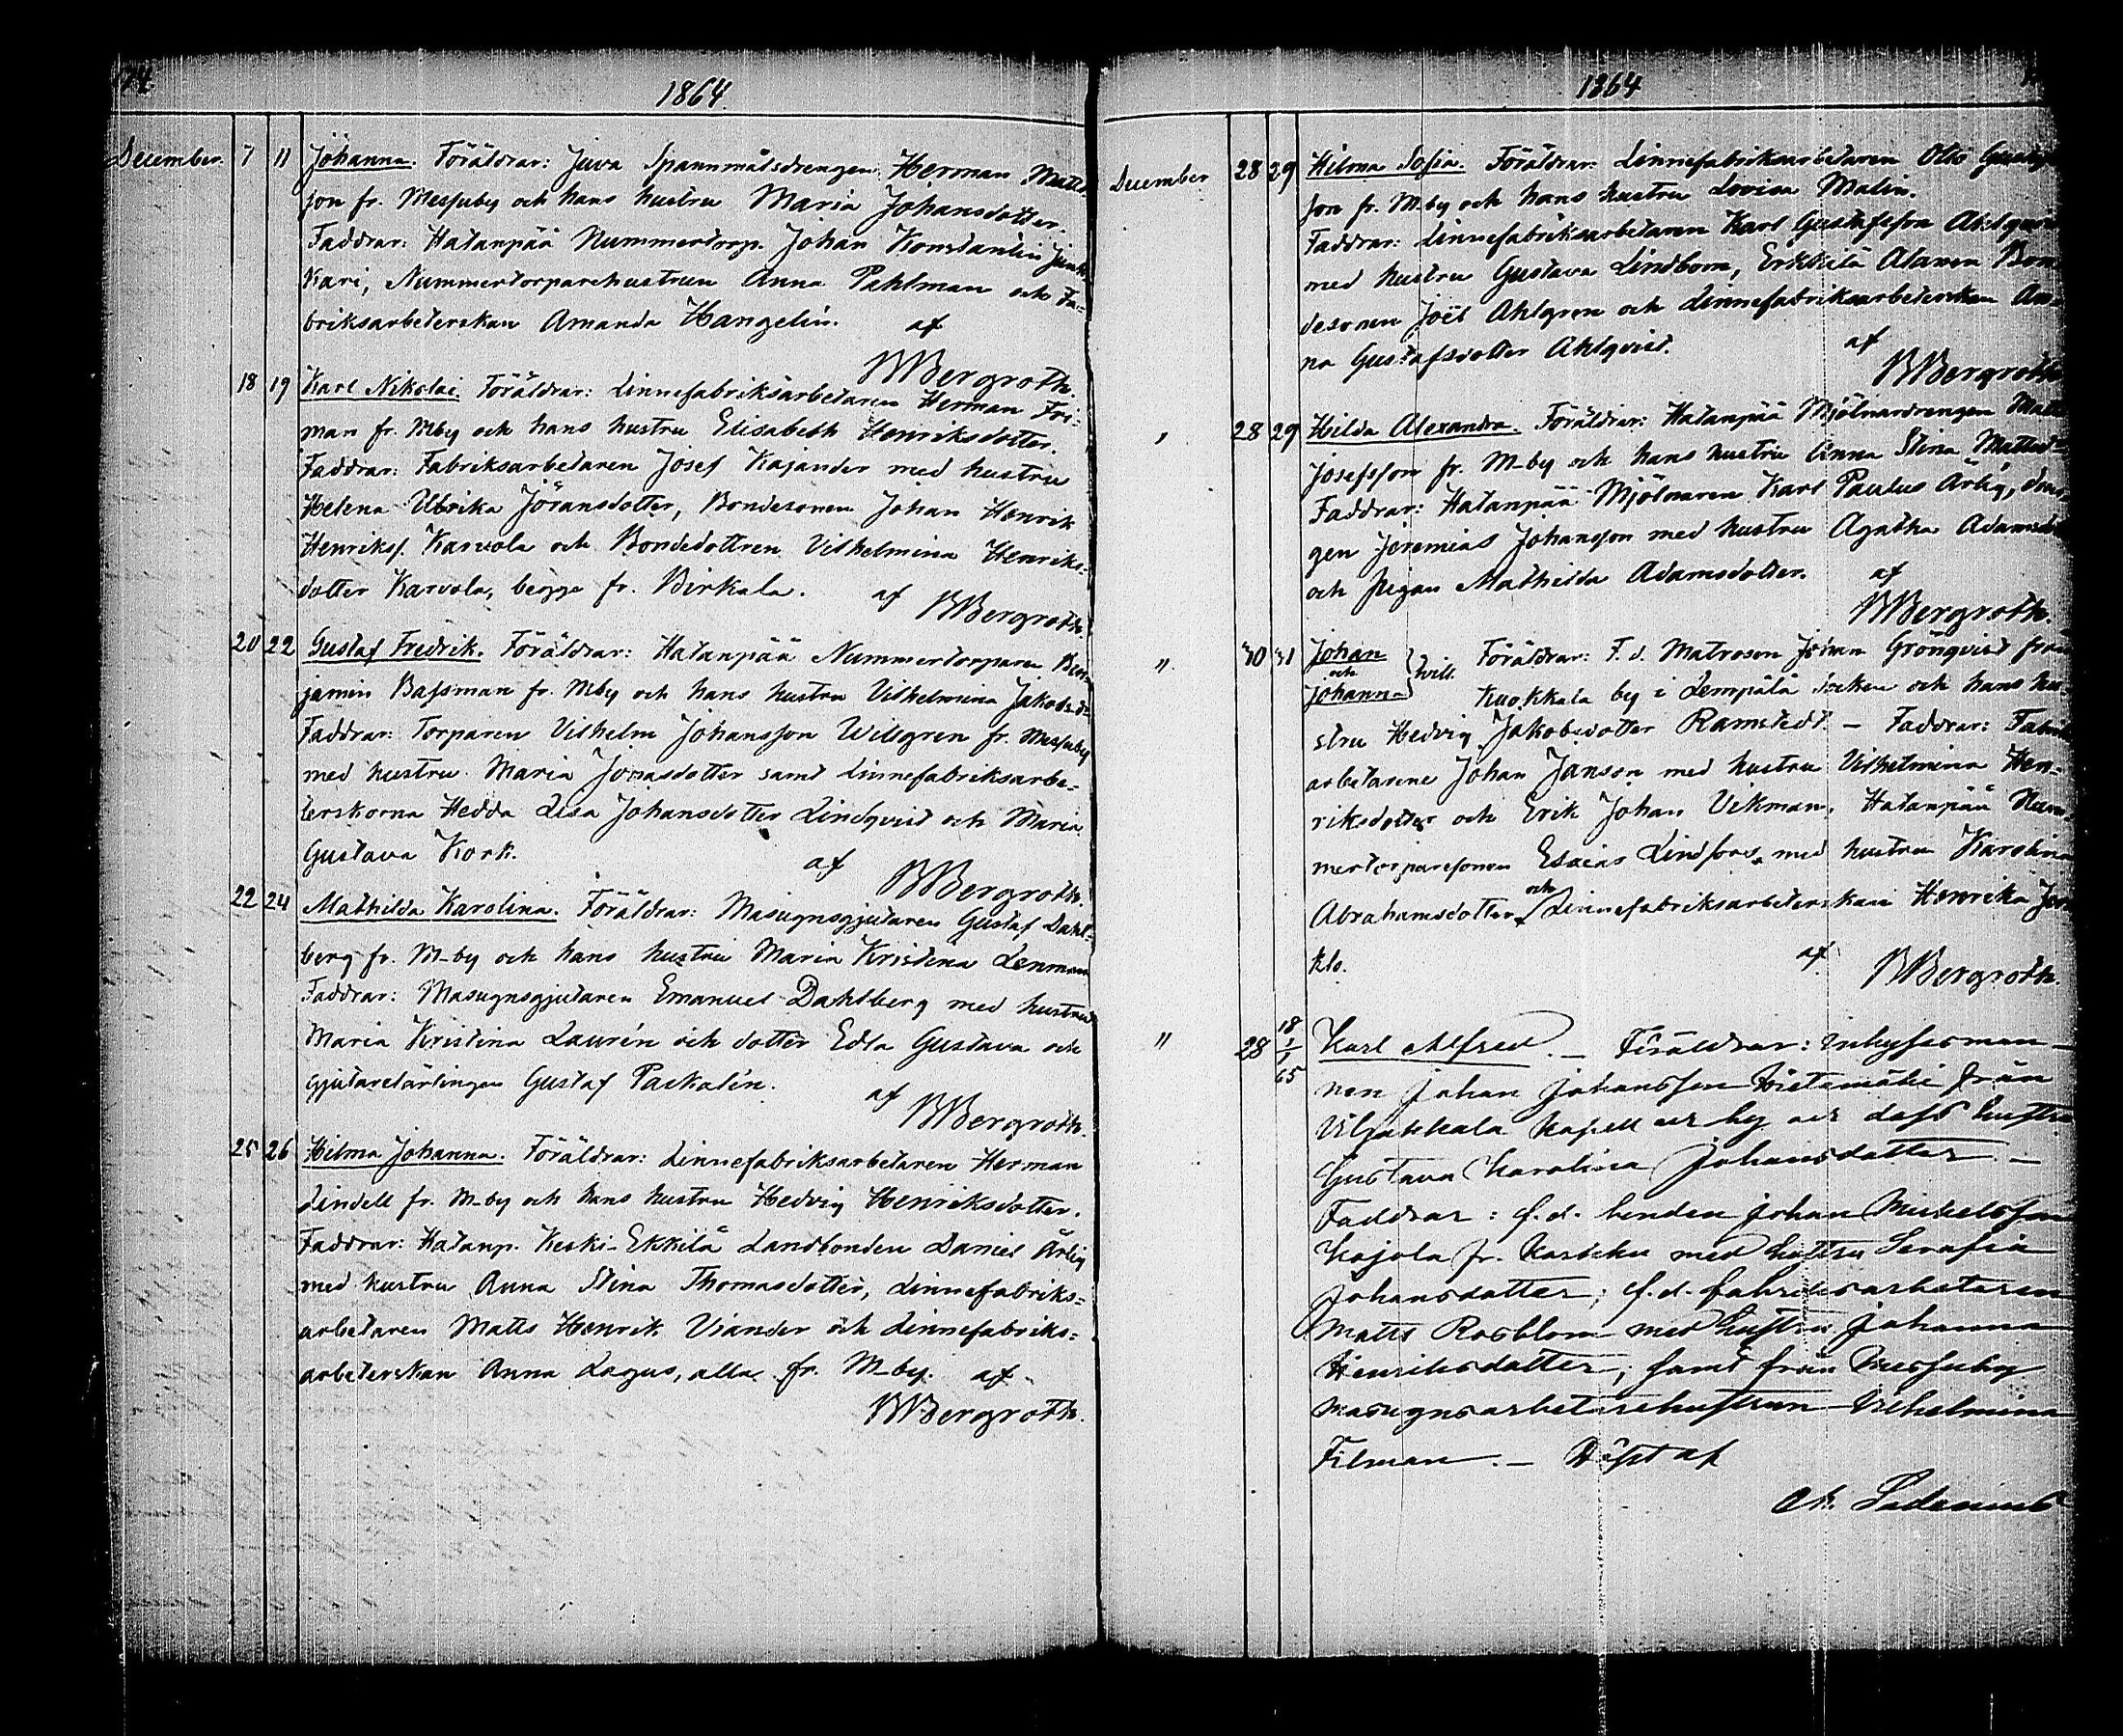 74.
1864.
December. 7 11 Johanna. Föräldrar: Juva Spannmålsdrengen Herman Matts
son fr. Messuby och hans hustru Maria Johansdotter.
Faddrar: Hatanpää Nummertorp. Johan Konstantin
Kari, Nummertorparehustrun Anna Pahlman och Fa-
briksarbeterskan Amanda Hangelin. af
BBergroth.
18 19 Karl Nikolai. Föräldrar: Linnefabriksarbetaren Herman Fri-
man fr. Mby och hans hustru Elisabeth Henriksdotter.
Faddrar: Fabriksarbetaren Josef Kajander med hustru
Helena Ulrika Jöransdotter, Bondesonen Johan Henrik
Henriksf. Karvola och Bondedottren Vilhelmina Henriks-
dotter Karvola, begge fr. Birkala. af
BBergroth.
20 22 Gustaf Fredrik. Föräldrar: Hatanpää Nummertorparen Ben-
jamin Bassman fr. Mby och hans hustru Vilhelmina Jakobsd-
Faddrar: Torparen Vilhelm Johansson Willgren fr. Messuby
med hustru Maria Jonasdotter samt Linnefabriksarbe-
terskorna Hedda Lisa Johansdotter Lindqvist och Maria
Gustava Kork. af
BBergroth.
22 24 Mathilda Karolina. Föräldrar: Masugnsgjutaren Gustaf Dahl-
berg fr. M-by och hans hustru Maria Kristina Lenman
Faddrar: Masugnsgjutaren Emanuel Dahlberg med hustru
Maria Kristina Laurén och dotter Edla Gustava och
gjutarelärlingen Gustaf Paskalin. af
BBergroth.
25 26 Hilma Johanna. Föräldrar: Linnefabriksarbetaren Herman
Lindell fr. M-by och hans hustru Hedvig Henriksdotter.
Faddrar: Hatanp. Keski-Ekkilä Landbonden Daniel Ärlig
med hustru Anna Stina Thomasdotter, Linnefabriks-
arbetaren Matts Henrik Viander och Linnefabriks-
arbeterskan Anna Lagus, alla fr. M-by. af
BBergroth.
1864
December 28 29 Hilma Sofia. Föräldrar: Linnefabriksarbetaren Otto Gustaf
son fr. M-by och hans hustru Lovisa Malin.
Faddrar: Linnefabriksarbetaren Karl Gustafsson Ahlgren
med hustru Gustava Lindbom, Erkkilä Alanen Bon
desonen Joël Ahlgren och Linnefabriksarbeterskan An-
na Gustafsdotter Ahlqvist. af
BBergroth
" 28 29 Hilda Alexandra. Föräldrar: Hatanpää Mjölnardrengen Matts
Josefsson fr. M-by och hans hustru Anna Stina Mattsd-
Faddrar: Hatanpää Mjölnaren Karl Paulus Ärlig, dren
gen Jeremias Johansson med hustru Agatha Adamsdo
och pigan Mathilda Adamsdotter. af
BBergroth.
" 30 31 Johan och Johanna} tvill. Föräldrar: F. d. Matrosen Johan Grönqvist från
Kuokkala by i Lempälä socken och hans hu-
stru Hedvig Jakobsdotter Ramstedt. - Faddrar: Fabriks
arbetarene Johan Janson med hustru Vilhelmina Hen-
riksdotter och Erik Johan Vikman, Hatanpää Num-
mertorparesonen Esaias Lindfors med hustru Karolina
Abrahamsdotter och Linnefabriksarbeterskan Henrika
klo. af
BBergroth.
" 28 18/1 65 Karl Alfred. - Föräldrar: Inhysesman-
nen Johan Johansson från
Viljakkala kapell och by och dess hustru
Gustava Karolina Johansdotter -
Faddrar: f.d. bonden Johan Mickelsson
Kojola fr. med hustru Serafia
Johansdotter; f.d. fabriksarbetaren
Matts Rosblom med hustru Johanna
Henriksdotter; samt från Messuby
masugnsarbetarehustrun Vilhelmina
Filman. - Döpt af